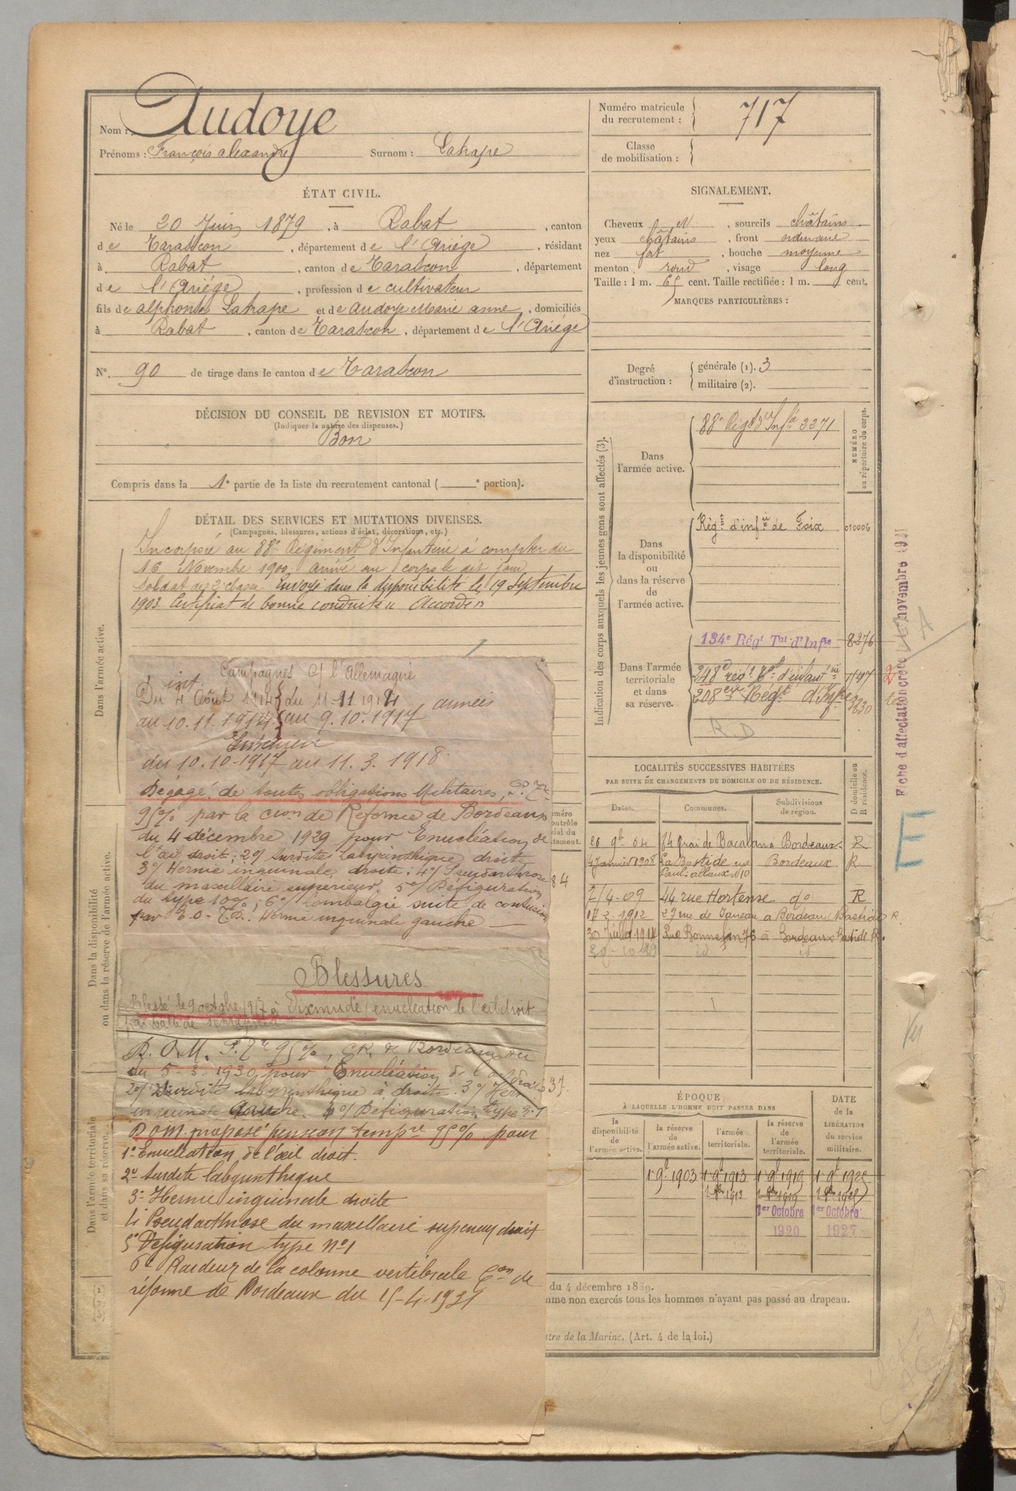 Nom : Audoye
Prénoms : François alexandre Surnom : Lahape
Numéro matricule du recrutement : 717
Classe de mobilisation :
ÉTAT CIVIL.
Né le 20 Juin 1879, à Rabat, canton
de Tarascon, département de l'Ariége, résidant
à Rabat, canton de Tarascon, département
de l'Ariége, profession de cultivateur
fils de alphonse Lahape et de Audoye Marie anne, domiciliés
à Rabat, canton de Tarascon, département de l'Ariége
N°. 90 de tirage dans le canton de Tarascon
SIGNALEMENT.
Cheveux N, sourcils châtains
yeux châtains, front ordinaire
nez fort, bouche moyenne
menton rond, visage long
Taille : 1 m. 65 cent. Taille rectifiée : 1 m. cent.
MARQUES PARTICULIÈRES :
Degré d'instruction : générale (1). 3
militaire (2).
DÉCISION DU CONSEIL DE REVISION ET MOTIFS.
(Indiquer la nature des dispenses.)
Bon
Compris dans la 1e partie de la liste du recrutement cantonal ( e portion).
DÉTAIL DES SERVICES ET MUTATIONS DIVERSES.
(Campagnes, blessures, actions d'éclat, décorations, etc.)
Incorporé au 88e Régiment d'Infanterie à compter du
16 Novembre 1900, arrivé au corps le dit jour
soldat de 2e classe. Envoyé dans la disponibilité le 19 Septembre
1903. Certificat de bonne conduite Accordé
Dans l'armée active.
Dans la disponibilité ou dans la réserve de l'armée active.
Dans l'armée territoriale et dans sa réserve.
Campagnes Ct l'Allemagne
int.
Du 4 Août 1914 du 11-11 1914 armées
au 10.11.1914 au 9.10.1917
Intérieur
du 10.10-1917 au 11.3.1918
Dégagé de toutes obligations Militaires, P. Tre
95% par la Cion de Réforme de Bordeaux
du 4 décembre 1929 pour Enucléation de
l'œil droit; 2°/ Surdité labyrinthique droite
3°/ Hernie inguinale droite; 4°/ Pseudarthrose
du maxillaire supérieur, 5°/ Défiguration
du type 10%; 6°/ lombalgie suite de contusion
Hernie inguinale gauche
Blessures
Blessé le 9 octobre 1917 à Dixmude (enucléation de l'œil droit
D.O.M. P. Tre 95%, CR. de Bordeaux
du 5-3-1930 pour Enucléation de l'œil
2°/ Surdité labyrinthique à droite 3°/
inguinale 4°/ Défiguration type
D.O.M. proposé pension tempre 95% pour
1° Enucléation de l'œil droit.
2° Surdité labyrinthique
3° Hernie inguinale droite
4° Pseudarthrose du maxillaire supérieur droit
5° Défiguration type n°1
6° Raideur de la colonne vertébrale Con de
réforme de Bordeaux du 15-4-1931
Indication des corps auxquels les jeunes gens sont affectés (3).
NUMÉRO au répertoire du corps.
Dans l'armée active. 88e Régt d'Infie 3371
Dans la disponibilité ou dans la réserve de l'armée active. Régt d'infie de Foix 010006
Dans l'armée territoriale et dans sa réserve. 134e Régt Tal d'Infie 8376
248e régt Tal d'infanie 7147
208eme Regt d'Infie
R D
Fiche d'affectation créée novembre 1931
E
LOCALITÉS SUCCESSIVES HABITÉES
PAR SUITE DE CHANGEMENTS DE DOMICILE OU DE RÉSIDENCE.
Dates. Communes. Subdivisions de région. D domicile ou R résidence.
26 9b 04 14 Quai de Bacalan à Bordeaux R
4 Janvier 1908 La Bastide rue Bordeaux R
2/4-09 44 rue Hortense do R
17 2 1912 27 rue de Janeau à Bordeaux Bastide R.
30 Juillet 1914 Rue Bonnefon 76 à Bordeaux Bastide R.
ÉPOQUE
À LAQUELLE L'HOMME DOIT PASSER DANS
DATE de la LIBÉRATION du service militaire.
la disponibilité de l'armée active. la réserve de l'armée active. l'armée territoriale. la réserve de l'armée territoriale.
1 9b 1903 1 9b 1913 1 9b 1919 1 9b 1925
1er Octobre 1920 1er Octobre 1927
du 4 décembre 1889.
mme non exercés tous les hommes n'ayant pas passé au drapeau.
stre de la Marine. (Art. 4 de la loi.)